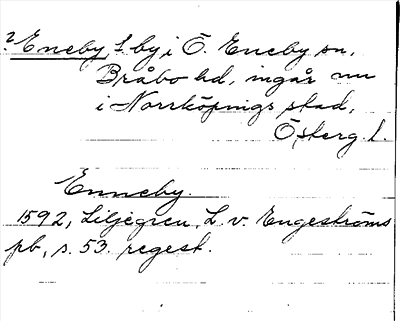 ? Eneby, f. by i Ö. Eneby sn,
Bråbo hd, ingår nu
i Norrköpings stad,
Österg. l.
Enneby.
1592, Liljegren, L. v. Engeströms
pb, s. 53. regest.